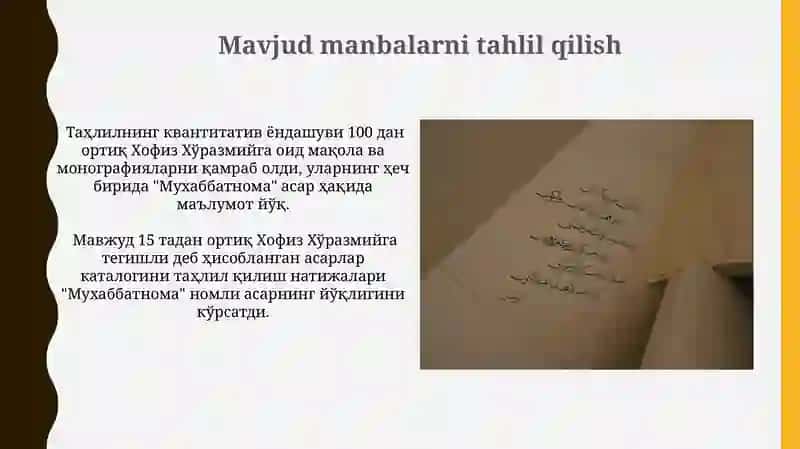 Mavjud manbalarni tahlil qilish
Таҳлилнинг квантитатив ёндашуви 100 дан
ортиқ Хофиз Хўразмийга оид мақола ва
монографияларни қамраб олди, уларнинг ҳеч
бирида "Мухаббатнома" асар ҳақида
маълумот йўқ.
Мавжуд 15 тадан ортиқ Хофиз Хўразмийга
тегишли деб ҳисобланган асарлар
каталогини таҳлил қилиш натижалари
"Мухаббатнома" номли асарнинг йўқлигини
кўрсатди.